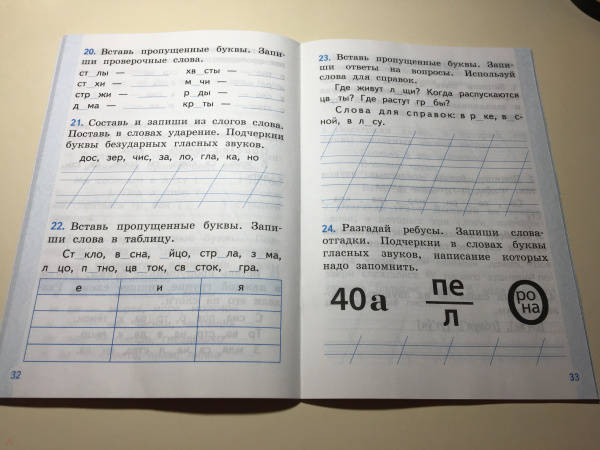 20. Вставь пропущенные буквы. Запи-
ши проверочные слова.
ст_лы — хв_сты —
ст_хи — м_чи —
стр_жи — р_ды —
д_ма — кр_ты —
21. Составь и запиши из слогов слова.
Поставь в словах ударение. Подчеркни
буквы безударных гласных звуков.
дос, зер, чис, за, ло, гла, ка, но
22. Вставь пропущенные буквы. Запи-
ши слова в таблицу.
Ст_кло, в_сна, _йцо, стр_ла, з_ма,
л_цо, п_тно, цв_ток, св_сток, _гра.
е и я
32
23. Вставь пропущенные буквы. Запи-
ши ответы на вопросы. Используй
слова для справок.
Где живут л_щи? Когда распускаются
цв_ты? Где растут гр_бы?
Слова для справок: в р_ке, в_с-
ной, в л_су.
24. Разгадай ребусы. Запиши слова-
отгадки. Подчеркни в словах буквы
гласных звуков, написание которых
надо запомнить.
40а
пе
л
ро
на
33